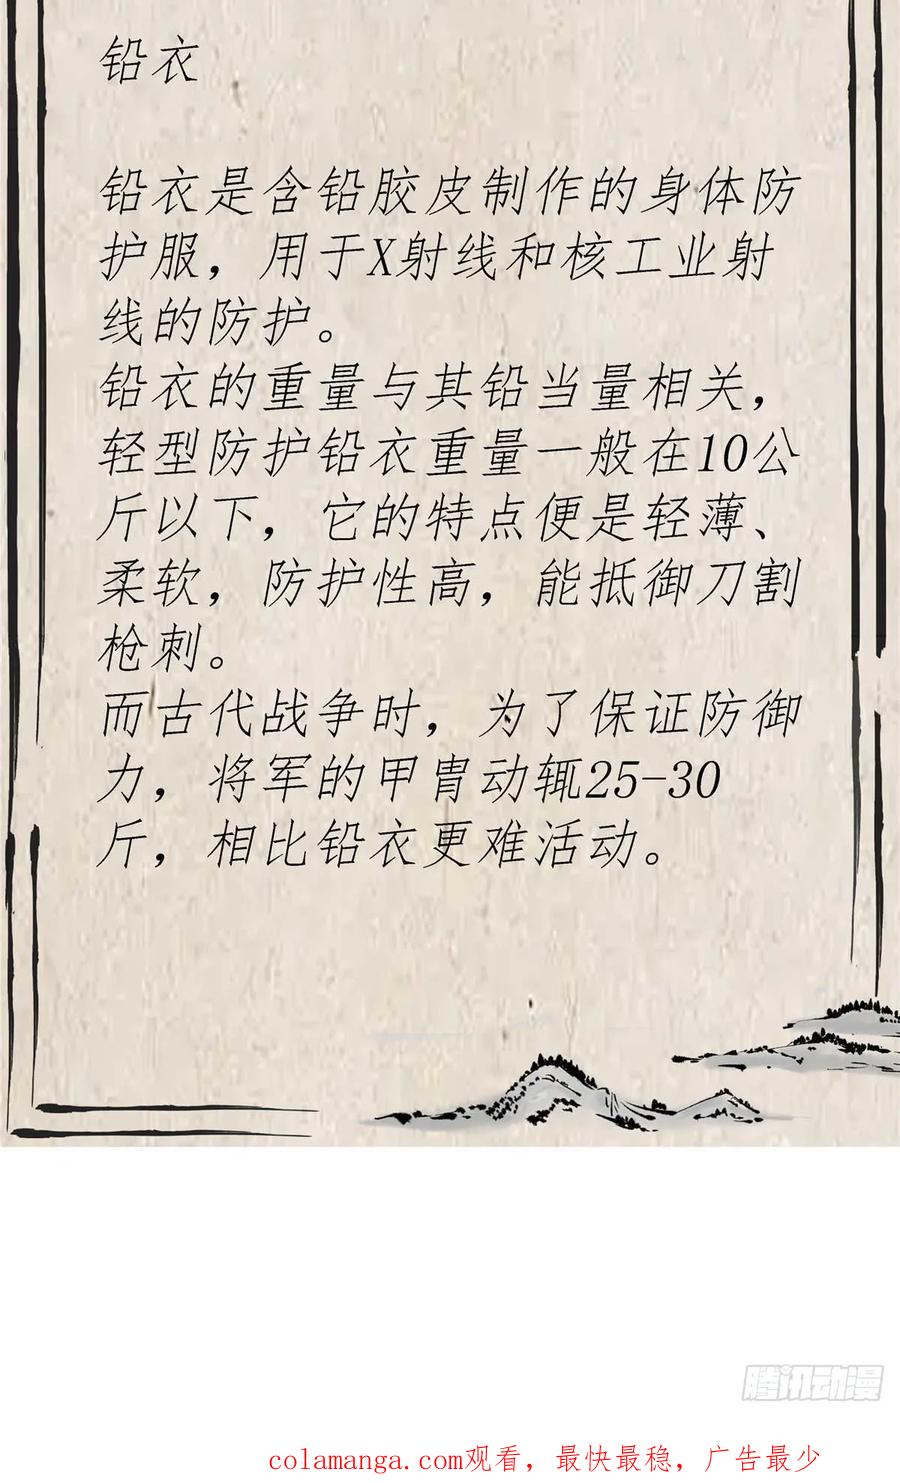 铅衣
铅衣是含铅胶皮制作的身体防
护服，用于X射线和核工业射
线的防护。
铅衣的重量与其铅当量相关，
轻型防护铅衣重量一般在10公
斤以下，它的特点便是轻薄、
柔软，防护性高，能抵御刀割
枪刺。
而古代战争时，为了保证防御
力，将军的甲胄动辄25-30
斤，相比铅衣更难活动。
腾讯动漫
colamanga.com观看，最快最稳，广告最少